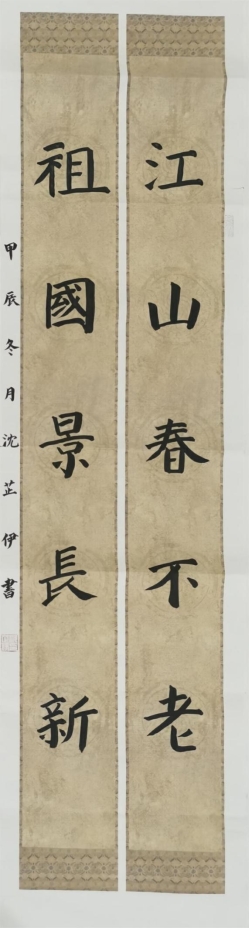 江山春不老
祖國景長新
甲辰冬月沈芷伊書